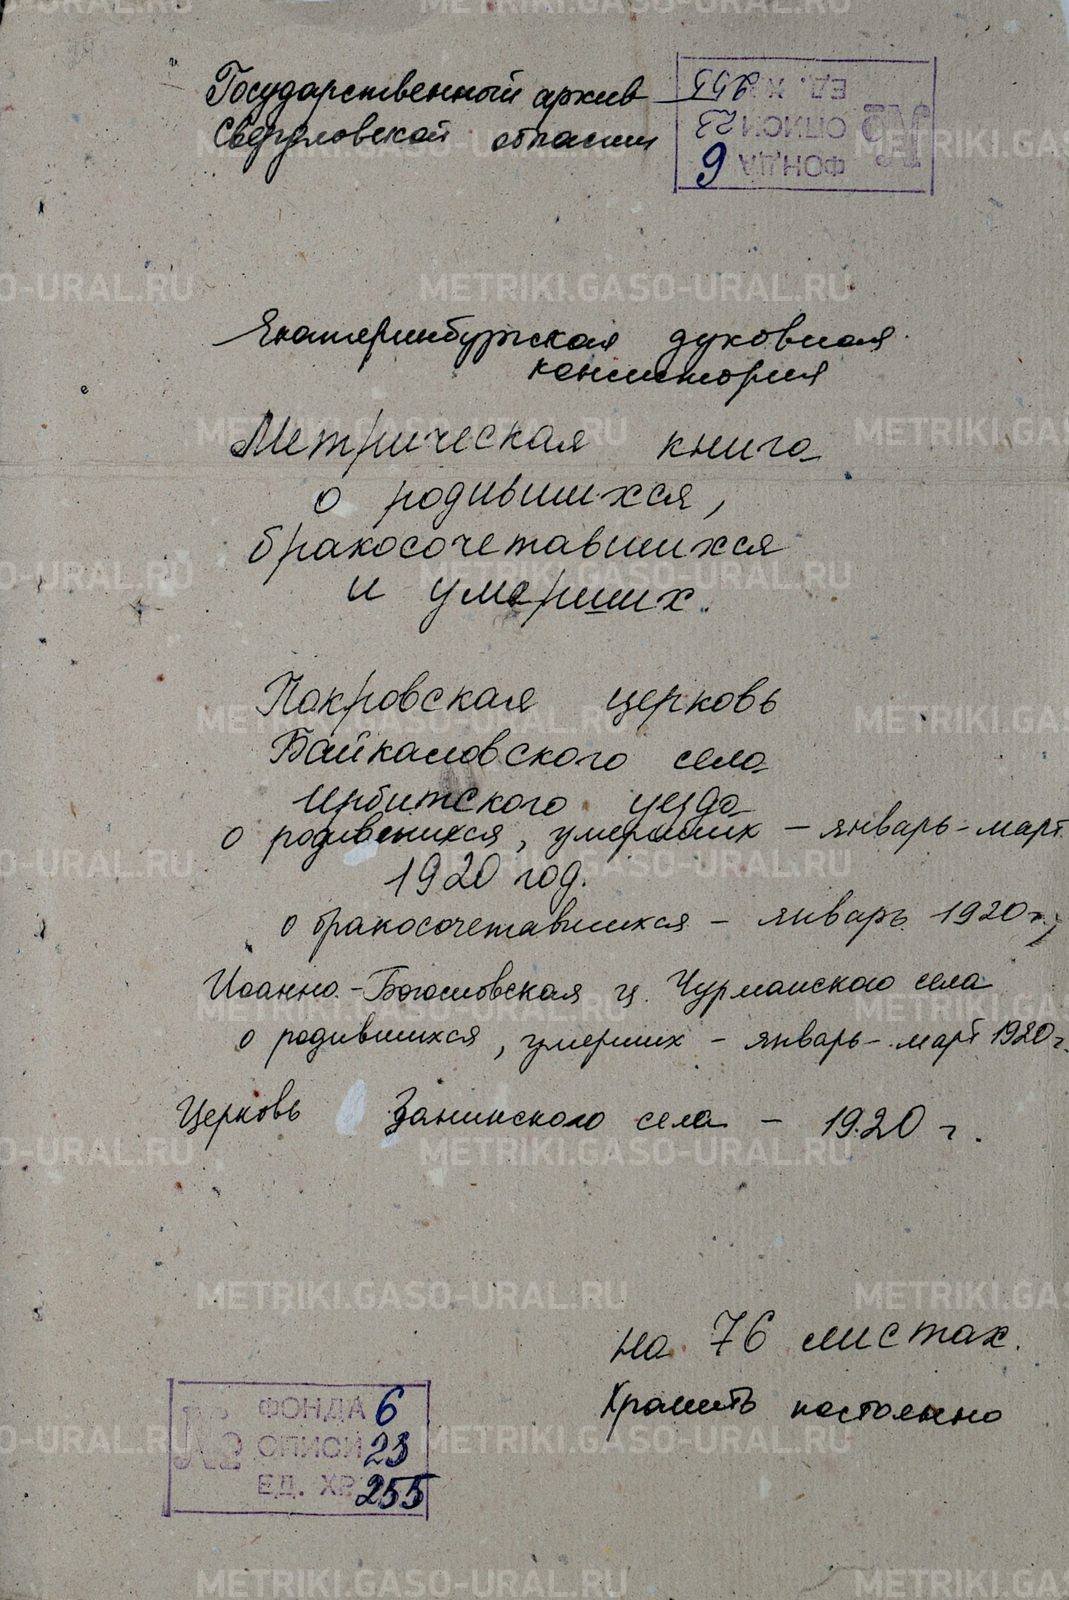 Государственный архив
Свердловской области
№ ФОНДА 6
ОПИСИ 23
ЕД. Х 255
Екатеринбургская духовная
консистория
Метрическая книга
о родившихся,
бракосочетавшихся
и умерших.
Покровская церковь
Байкаловского села
Ирбитского уезда
о родившихся, умерших – январь-март
1920 год.
о бракосочетавшихся – январь 1920 г.;
Иоанно-Богословская ц. Чурманского села
о родившихся, умерших – январь-март 1920 г.
Церковь Занинского села – 1920 г.
на 76 листах.
Хранить постоянно
№ ФОНДА 6
ОПИСИ 23
ЕД. ХР. 255
METRIKI.GASO-URAL.RU